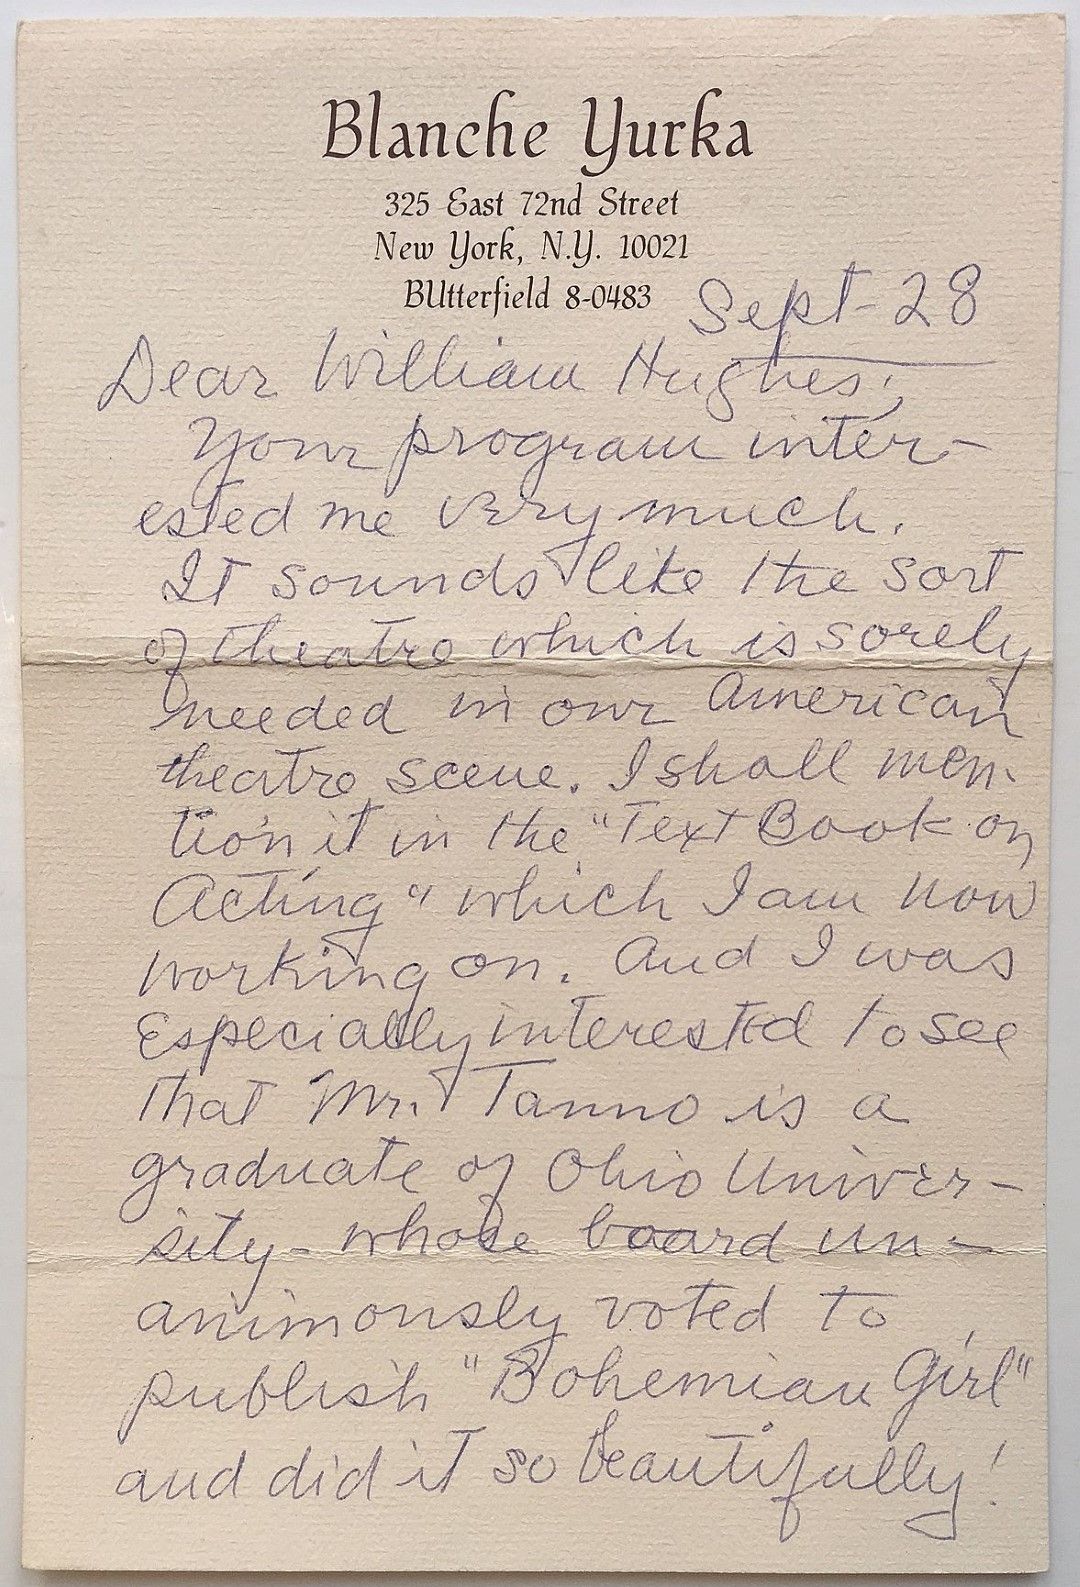 Blanche Yurka
325 East 72nd Street
New York, N.Y. 10021
BUtterfield 8-0483
Sept-28
Dear William Hughes;
Your program inter-
ested me very much.
It sounds like the sort
of theatre which is sorely
needed in our American
theatre scene. I shall men-
tion it in the "Text Book on
Acting" which I am now
working on. And I was
Especially interested to see
that Mr. Tanno is a
graduate of Ohio Univer-
sity - whose board un-
animously voted to
publish "Bohemian Girl"
and did it so beautifully!